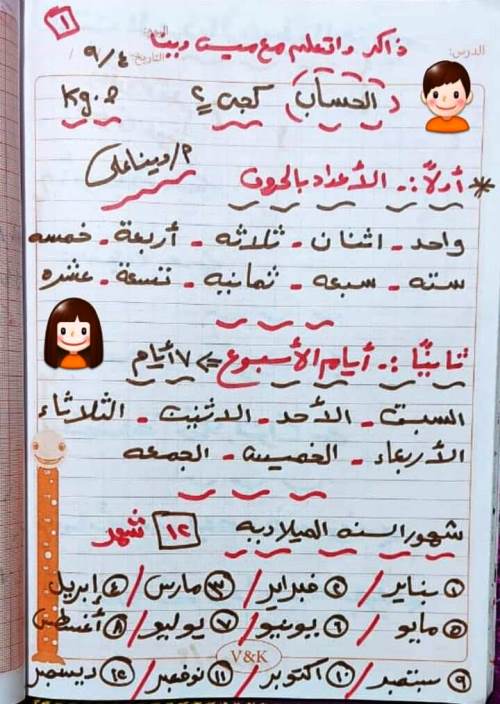 ١
ذاكر واتعلم مع ميس دينا
الدرس:
اليوم:
التاريخ:
٩/٤
(الحساب) كجى ٢
Kg.2
م/دينا على
* أولاً:. الأعداد بالحروف
واحد - اثنان - ثلاثه - أربعة - خمسه
سته - سبعه - ثمانيه - تسعة - عشره
ثانيًا:. أيام الأسبوع => ٧ أيام
السبت - الأحد - الاثنين - الثلاثاء
الأربعاء - الخميس - الجمعه
شهور السنه الميلاديه ١٢ شهر
١ يناير / ٢ فبراير / ٣ مارس / ٤ إبريل
٥ مايو / ٦ يونيو / ٧ يوليو / ٨ أغسطس
V&K
٩ سبتمبر / ١٠ اكتوبر / ١١ نوفمبر / ١٢ ديسمبر